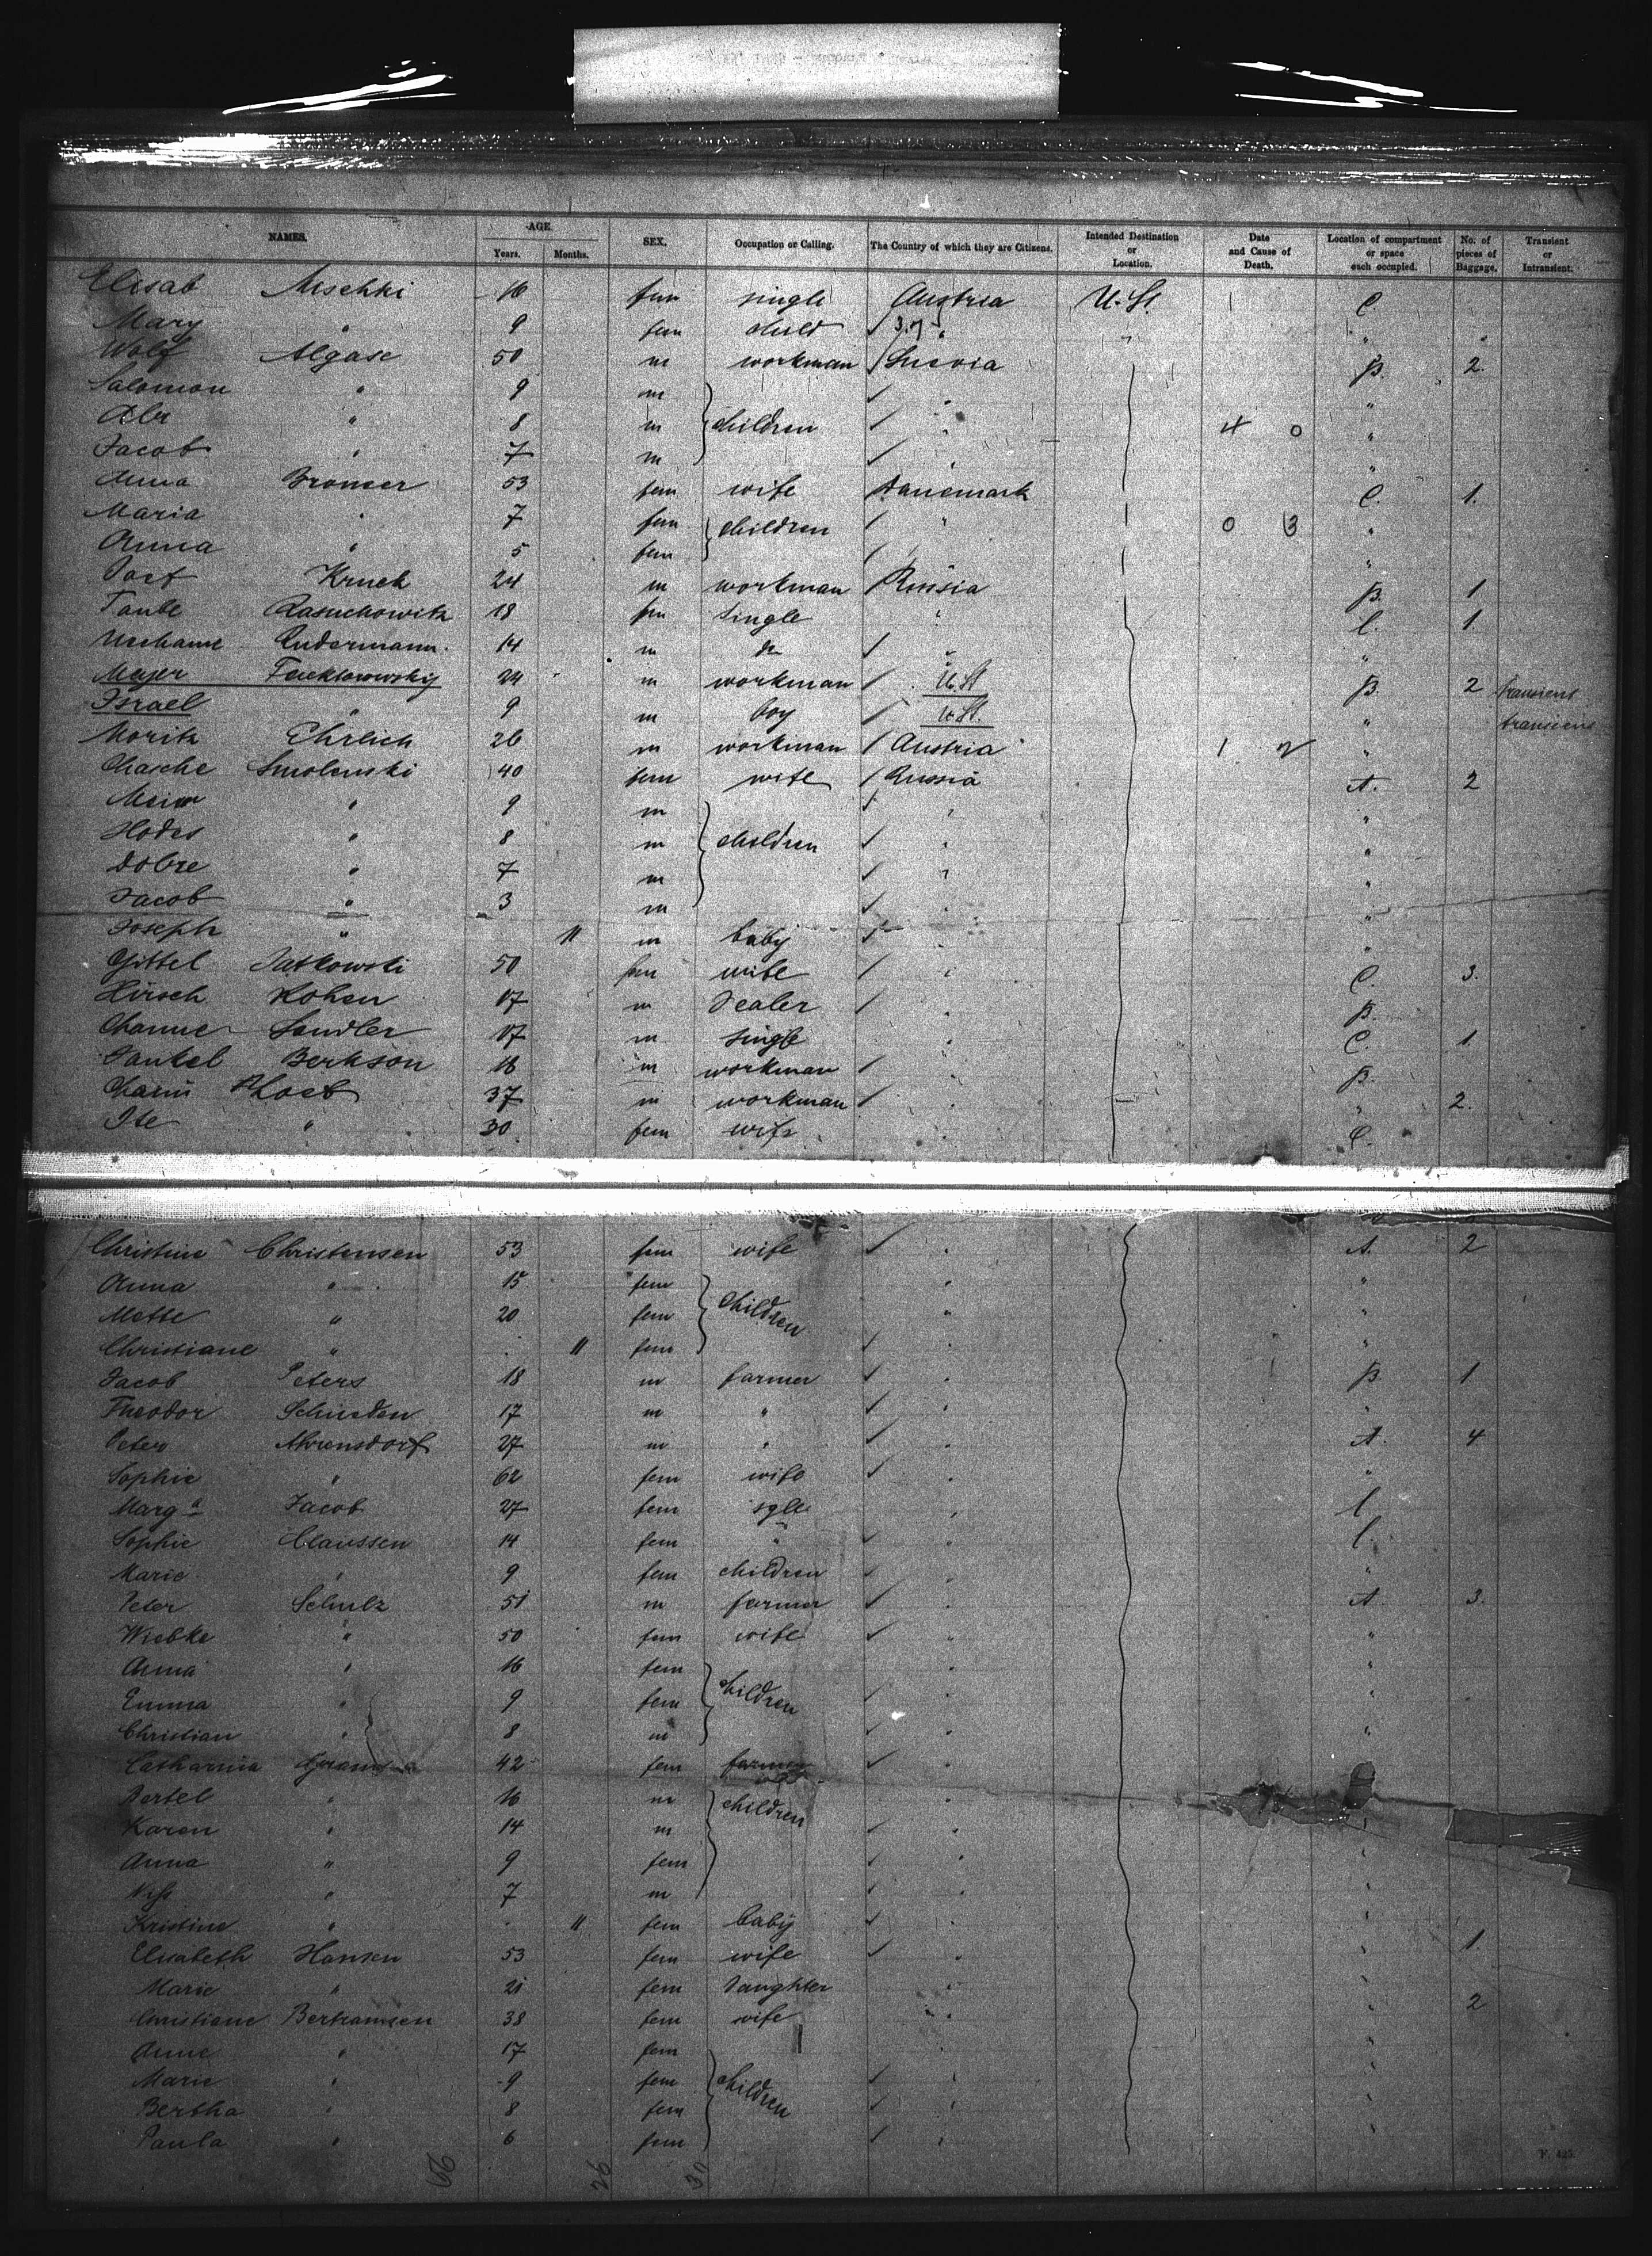 NAMES. AGE. SEX. Occupation or Calling. The Country of which they are Citizens. Intended Destination or Location. Date and Cause of Death. Location of compartment or space each occupied. No. of pieces of Baggage. Transient or Intransient.
Years. Months.
Elisab Mischki 16 fem single Austria U. St. C.
Mary " 9 fem child " " " "
Wolf Algase 50 m workman B. 2.
Salomon " 9 m "
Abr " 8 m children " 4 0 "
Jacob " 7 m " "
Anna Bromer 53 fem wife Danemark C. 1.
Maria " 7 fem children " 0 3 "
Anna " 5 fem " "
Kruck 24 m workman Russia B. 1
Taube 18 fem single " C. 1.
14 m do " "
Majer 24 m workman U. St B. 2 transient
Israel " 9 m boy U. St. " transient
Moritz Ehrlich 26 m workman Austria 1 2 "
Chasche Smolenski 40 fem wife Russia A. 2
Meier " 9 m " "
Hodes " 8 m children " "
Dobre " 7 m " "
Jacob " 3 m " "
Joseph " 11 m baby " "
Gittel Jatkowski 50 fem wife " C. 3.
Hirsch Kohen 17 m Dealer " B.
Channe Sandler 17 m single " C. 1
Jankel Berkson 18 m workman " B.
37 m workman " " 2.
Ite " 30 fem wife " C.
Christine Christensen 53 fem wife " A. 2
Anna " 15 fem " "
Mette " 20 fem children " "
Christiane " 11 fem " "
Jacob Peters 18 m farmer " B 1
Theodor 17 m " " "
Peter Ahrensdorf 27 m " " A. 4
Sophie " 62 fem wife " "
Marga Jacob 27 fem sgle " C
Sophie Claussen 14 fem " " C.
Marie " 9 fem children " "
Peter Schulz 51 m farmer " A. 3.
Wiebke " 50 fem wife " "
Anna " 16 fem " "
Emma " 9 fem children " "
Christian " 8 m " "
Catharnia 42 fem "
Bertel " 16 m children "
Karen " 14 m " "
Anna " 9 fem " "
Niss " 7 m " "
Kristine " 11 fem baby " "
Elisabeth Hansen 53 fem wife " " 1.
Marie " 21 fem daughter " "
Christiane Bertramsen 38 fem wife " " 2
Anne " 17 fem "
Marie " 9 fem children " "
Bertha " 8 fem " "
Paula " 6 fem " "